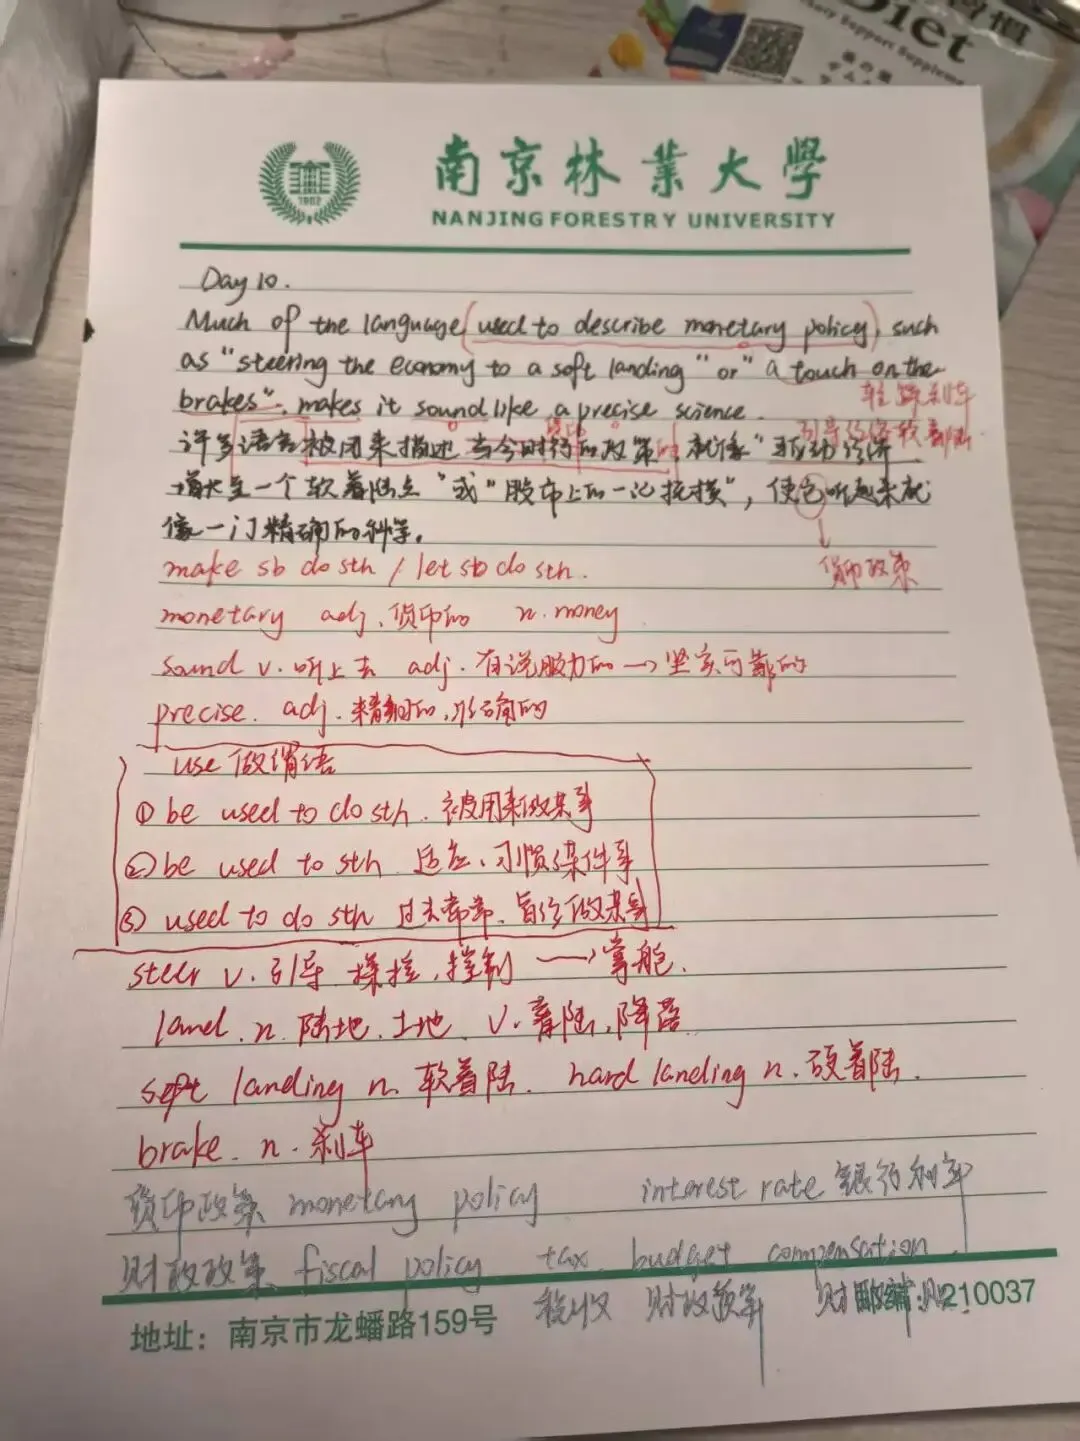 Diet
Support Suppleme
1902
南京林業大學
NANJING FORESTRY UNIVERSITY
Day 10.
Much of the language (used to describe monetary policy), such
as "steering the economy to a soft landing" or "a touch on the
brakes", makes it sound like a precise science.
轻踩刹车
引导经济软着陆
许多语言被用来描述当今时行的政策，就像"驱动经济
增长至一个软着陆点"或"股市上的一记"，使它听起来就
像一门精确的科学。
货币政策
make sb do sth / let sb do sth.
monetary adj. 货币的 n. money
sound v. 听上去 adj. 有说服力的 → 坚实可靠的
precise. adj. 精确的,准确的
use 做谓语
① be used to do sth. 被用来做某事
② be used to sth 适应、习惯某件事
③ used to do sth 过去常常、曾经做某事
steer v. 引导 操控,控制 → 掌舵.
land. n. 陆地.土地. v. 着陆,降落
soft landing n. 软着陆. hard landing n. 硬着陆.
brake. n. 刹车
货币政策 monetary policy interest rate 银行利率
财政政策 fiscal policy tax. budget compensation
税收 财政预算
地址：南京市龙蟠路159号 邮编:210037